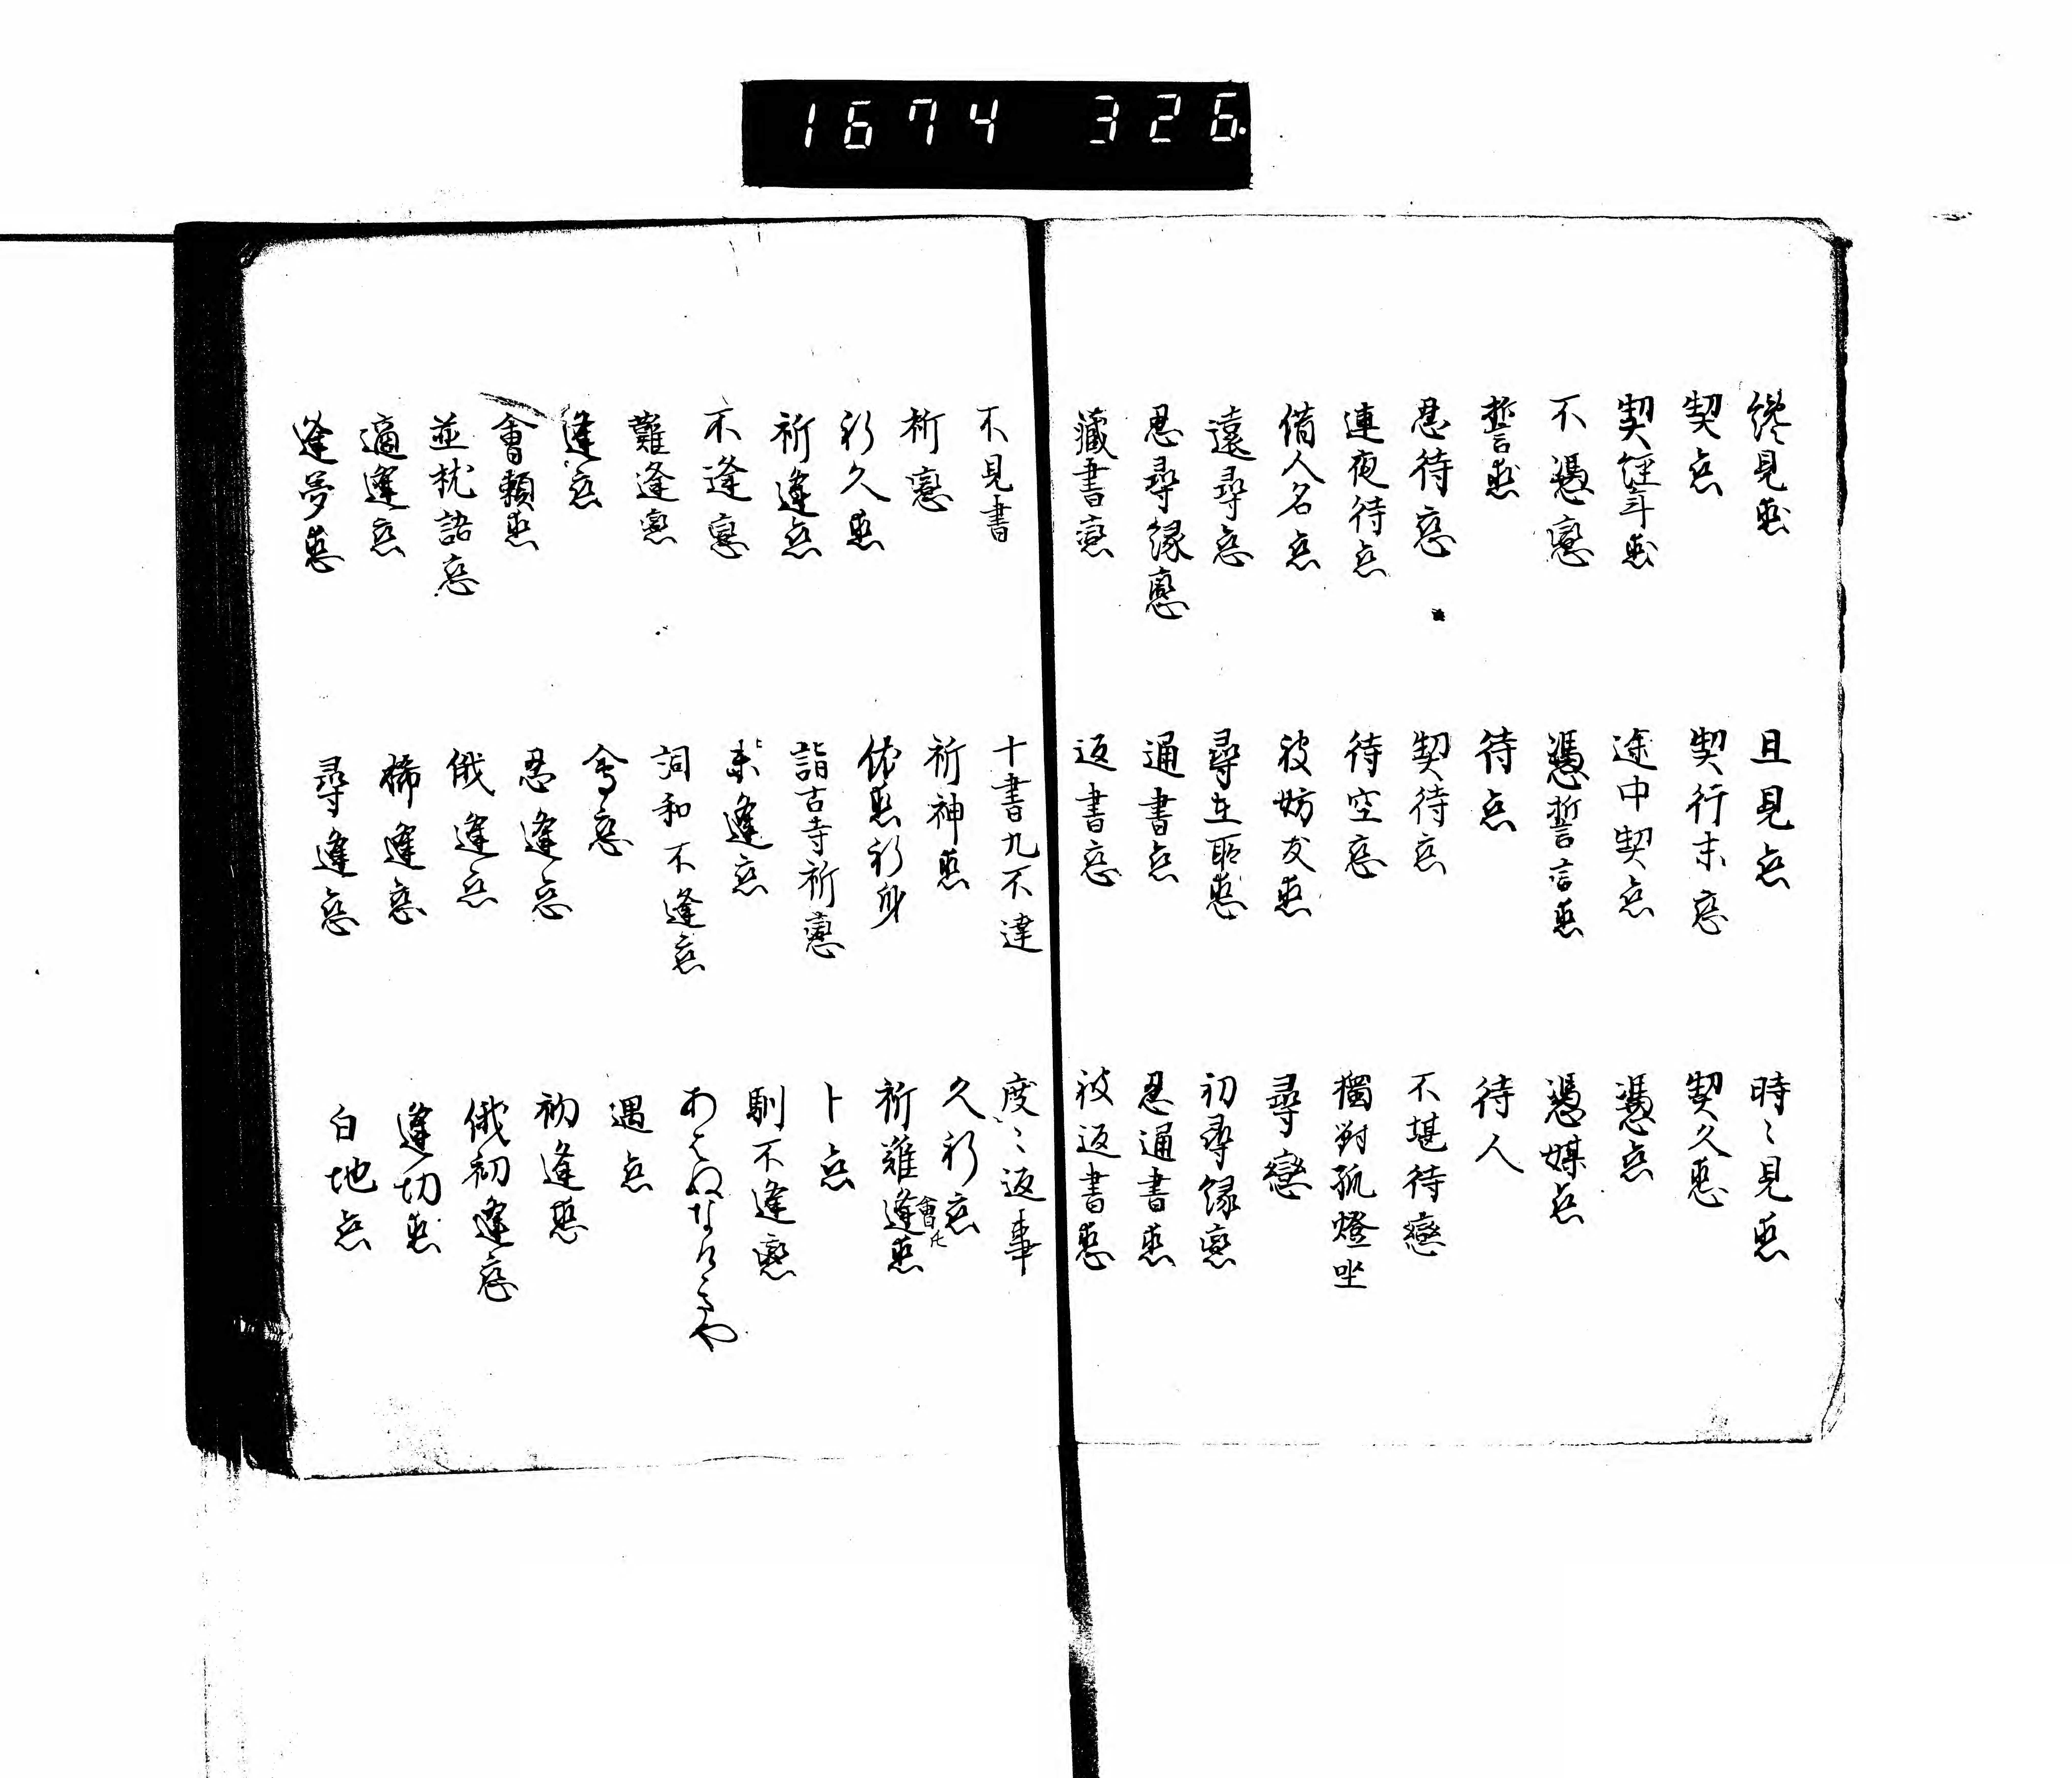 1674 326.
纔見恋
且見恋
時〻見恋
契恋
契行末恋
契久恋
契経年恋
途中契恋
憑恋
不憑恋
憑誓言恋
憑媒恋
誓恋
待恋
待人
忍待恋
契待恋
不堪待戀
連夜待恋
待空恋
獨對孤燈坐
借人名恋
被妨友恋
尋戀
遠尋恋
尋在所恋
初尋縁恋
忍尋縁恋
通書恋
忍通書恋
蔵書恋
返書恋
被返書恋
不見書
十書九不達
度〻返事
祈恋
祈神恋
久祈恋
祈久恋
依恋祈身
祈難逢恋
會イ
祈逢恋
詣古寺祈恋
卜恋
不逢恋
未逢恋
馴不逢恋
難逢恋
詞和不逢恋
逢恋
會恋
遇恋
會頼恋
忍逢恋
初逢恋
並枕語恋
俄逢恋
俄初逢恋
適逢恋
稀逢恋
逢切恋
逢夢恋
尋逢恋
白地恋